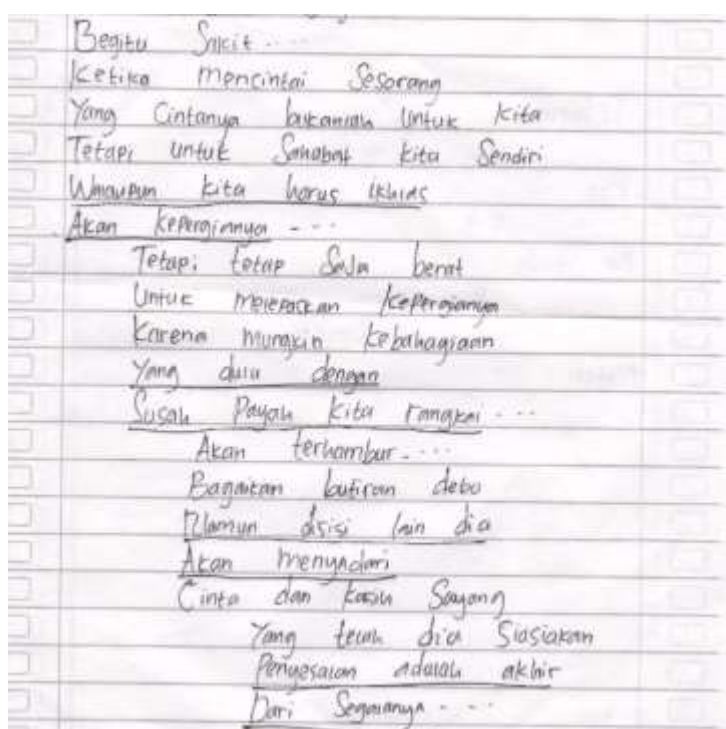 Begitu Sakit ....
Ketika mencintai Sesorang
Yang Cintanya bukanlah Untuk Kita
Tetapi untuk Sahabat kita Sendiri
Walaupun kita harus ikhlas
Akan kepergiannya ...
Tetapi tetap Saja berat
Untuk melepaskan kepergianya
Karena mungkin kebahagiaan
Yang dulu dengan
Susah Payah kita rangkai ...
Akan terhambur ....
Bagaikan butiran debu
Namun disisi lain dia
Akan menyadari
Cinta dan kasih Sayang
Yang telah dia Siasiakan
Penyesalan adalah akhir
Dari Segalanya ....